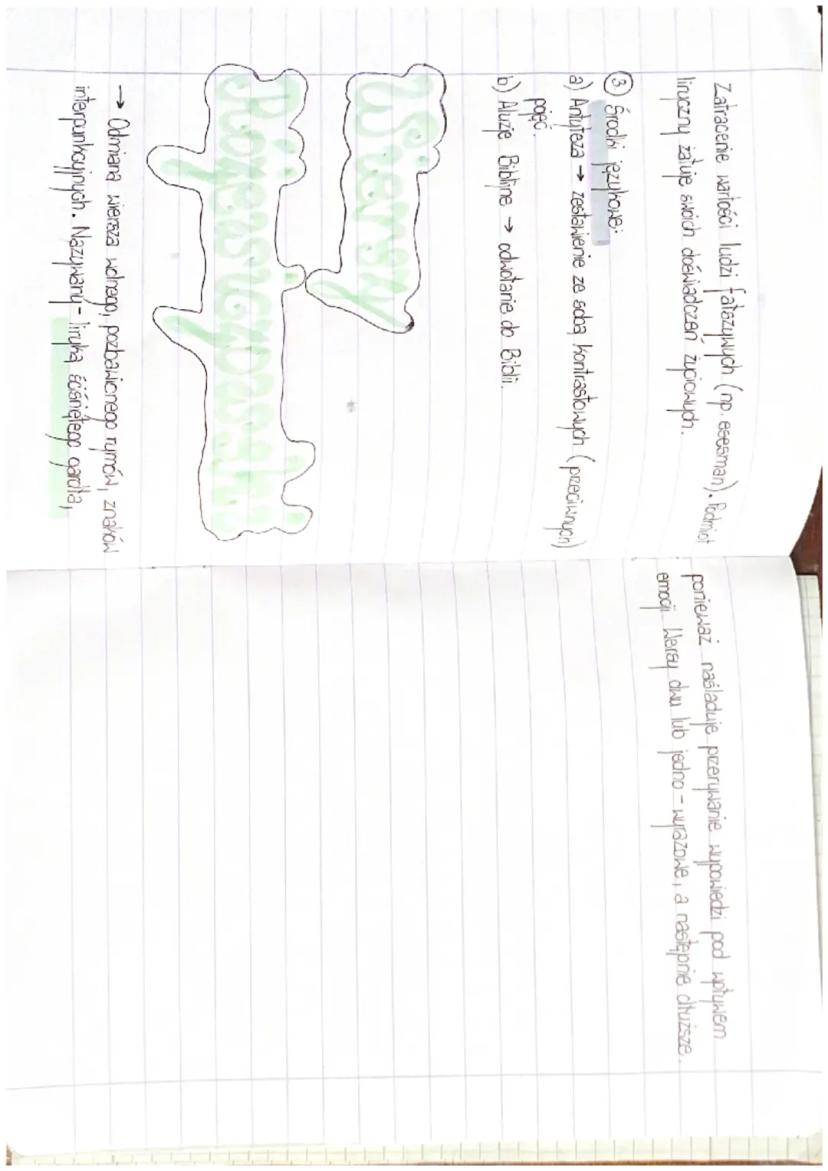 Zatracenie wartości ludzi fałazywych (np. esesman). Podmiot
liryczny żałuje swoich doświadczeń życiowych.
③ Środki językowe:
a) Antyteza → zestawienie ze sobą kontrastowych (przeciwnych)
pojęć.
b) Aluzje Biblijne → odwołanie do Bibli.
Wiersz
Różewiczowski
→ Odmiana wiersza wolnego, pozbawionego rymów, znaków
interpunkcyjnych. Nazywany - liryką ściśniętego gardła,
ponieważ naśladuje przerywanie wypowiedzi pod wpływem
emocji. Wersy dwu lub jedno - wyrazowe, a następnie dłuższe.